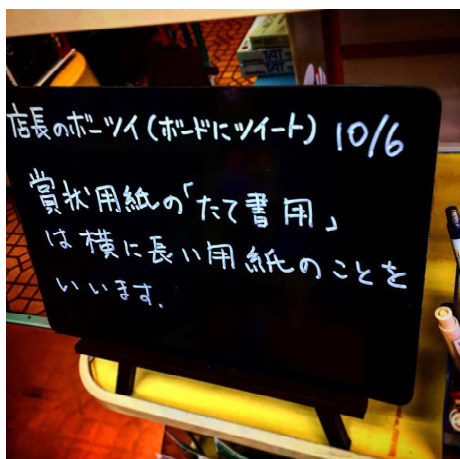 店長のボーツイ(ボードにツイート) 10/6
賞状用紙の「たて書用」
は横に長い用紙のことを
いいます.